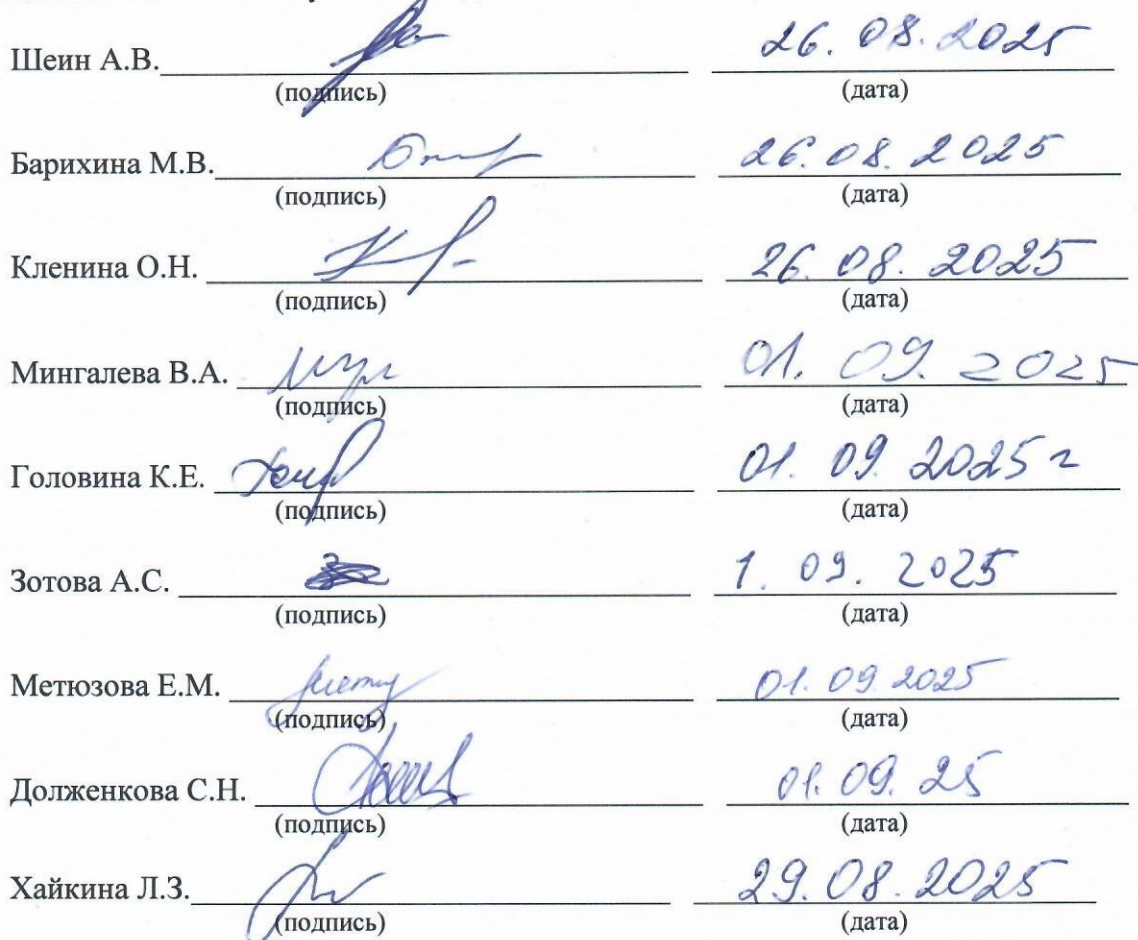 Шеин А.В. 26.08.2025
(подпись) (дата)
Барихина М.В. 26.08.2025
(подпись) (дата)
Кленина О.Н. 26.08.2025
(подпись) (дата)
Мингалева В.А. 01.09.2025
(подпись) (дата)
Головина К.Е. 01.09.2025 г
(подпись) (дата)
Зотова А.С. 1.09.2025
(подпись) (дата)
Метюзова Е.М. 01.09.2025
(подпись) (дата)
Долженкова С.Н. 01.09.25
(подпись) (дата)
Хайкина Л.З. 29.08.2025
(подпись) (дата)